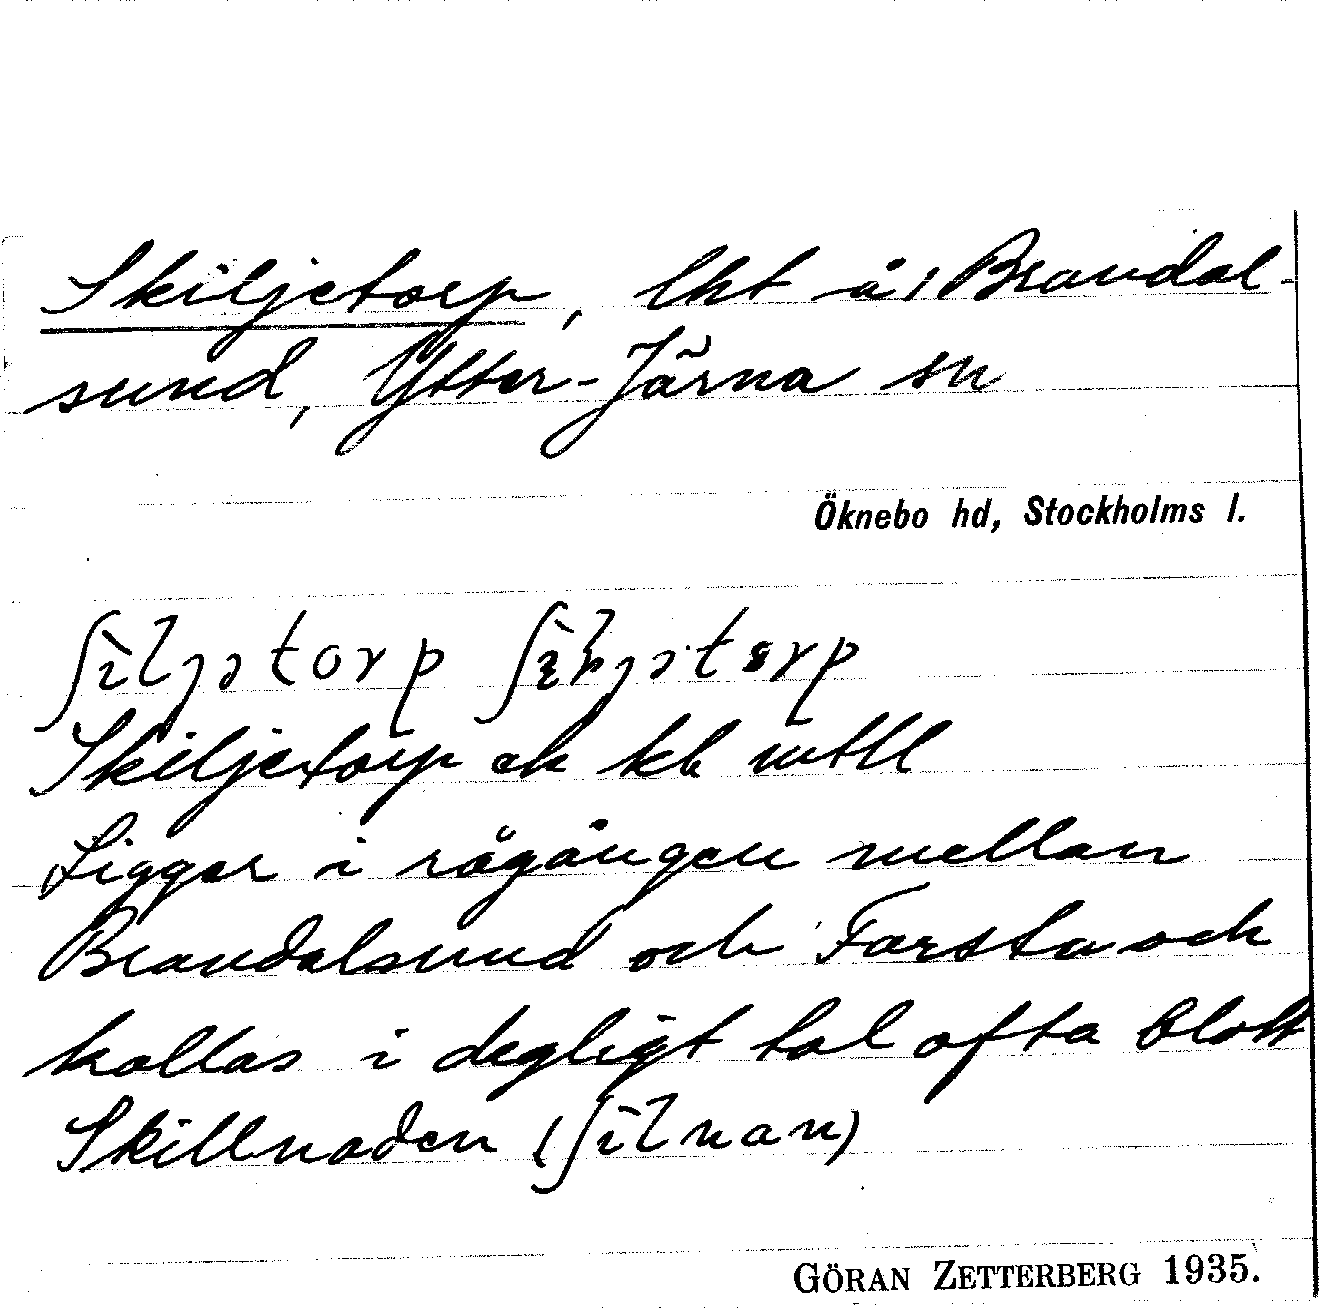 Skiljetorp, lht å Brandal-
sund, Ytter-Järna sn
Öknebo hd, Stockholms l.
ʃìljətorp
Skiljetorp ek kb mtll
Ligger i rågången mellan
Brandalsund och Farsta och
kallas i dagligt tal ofta blott
Skillnaden (ʃìlnan)
GÖRAN ZETTERBERG 1935.